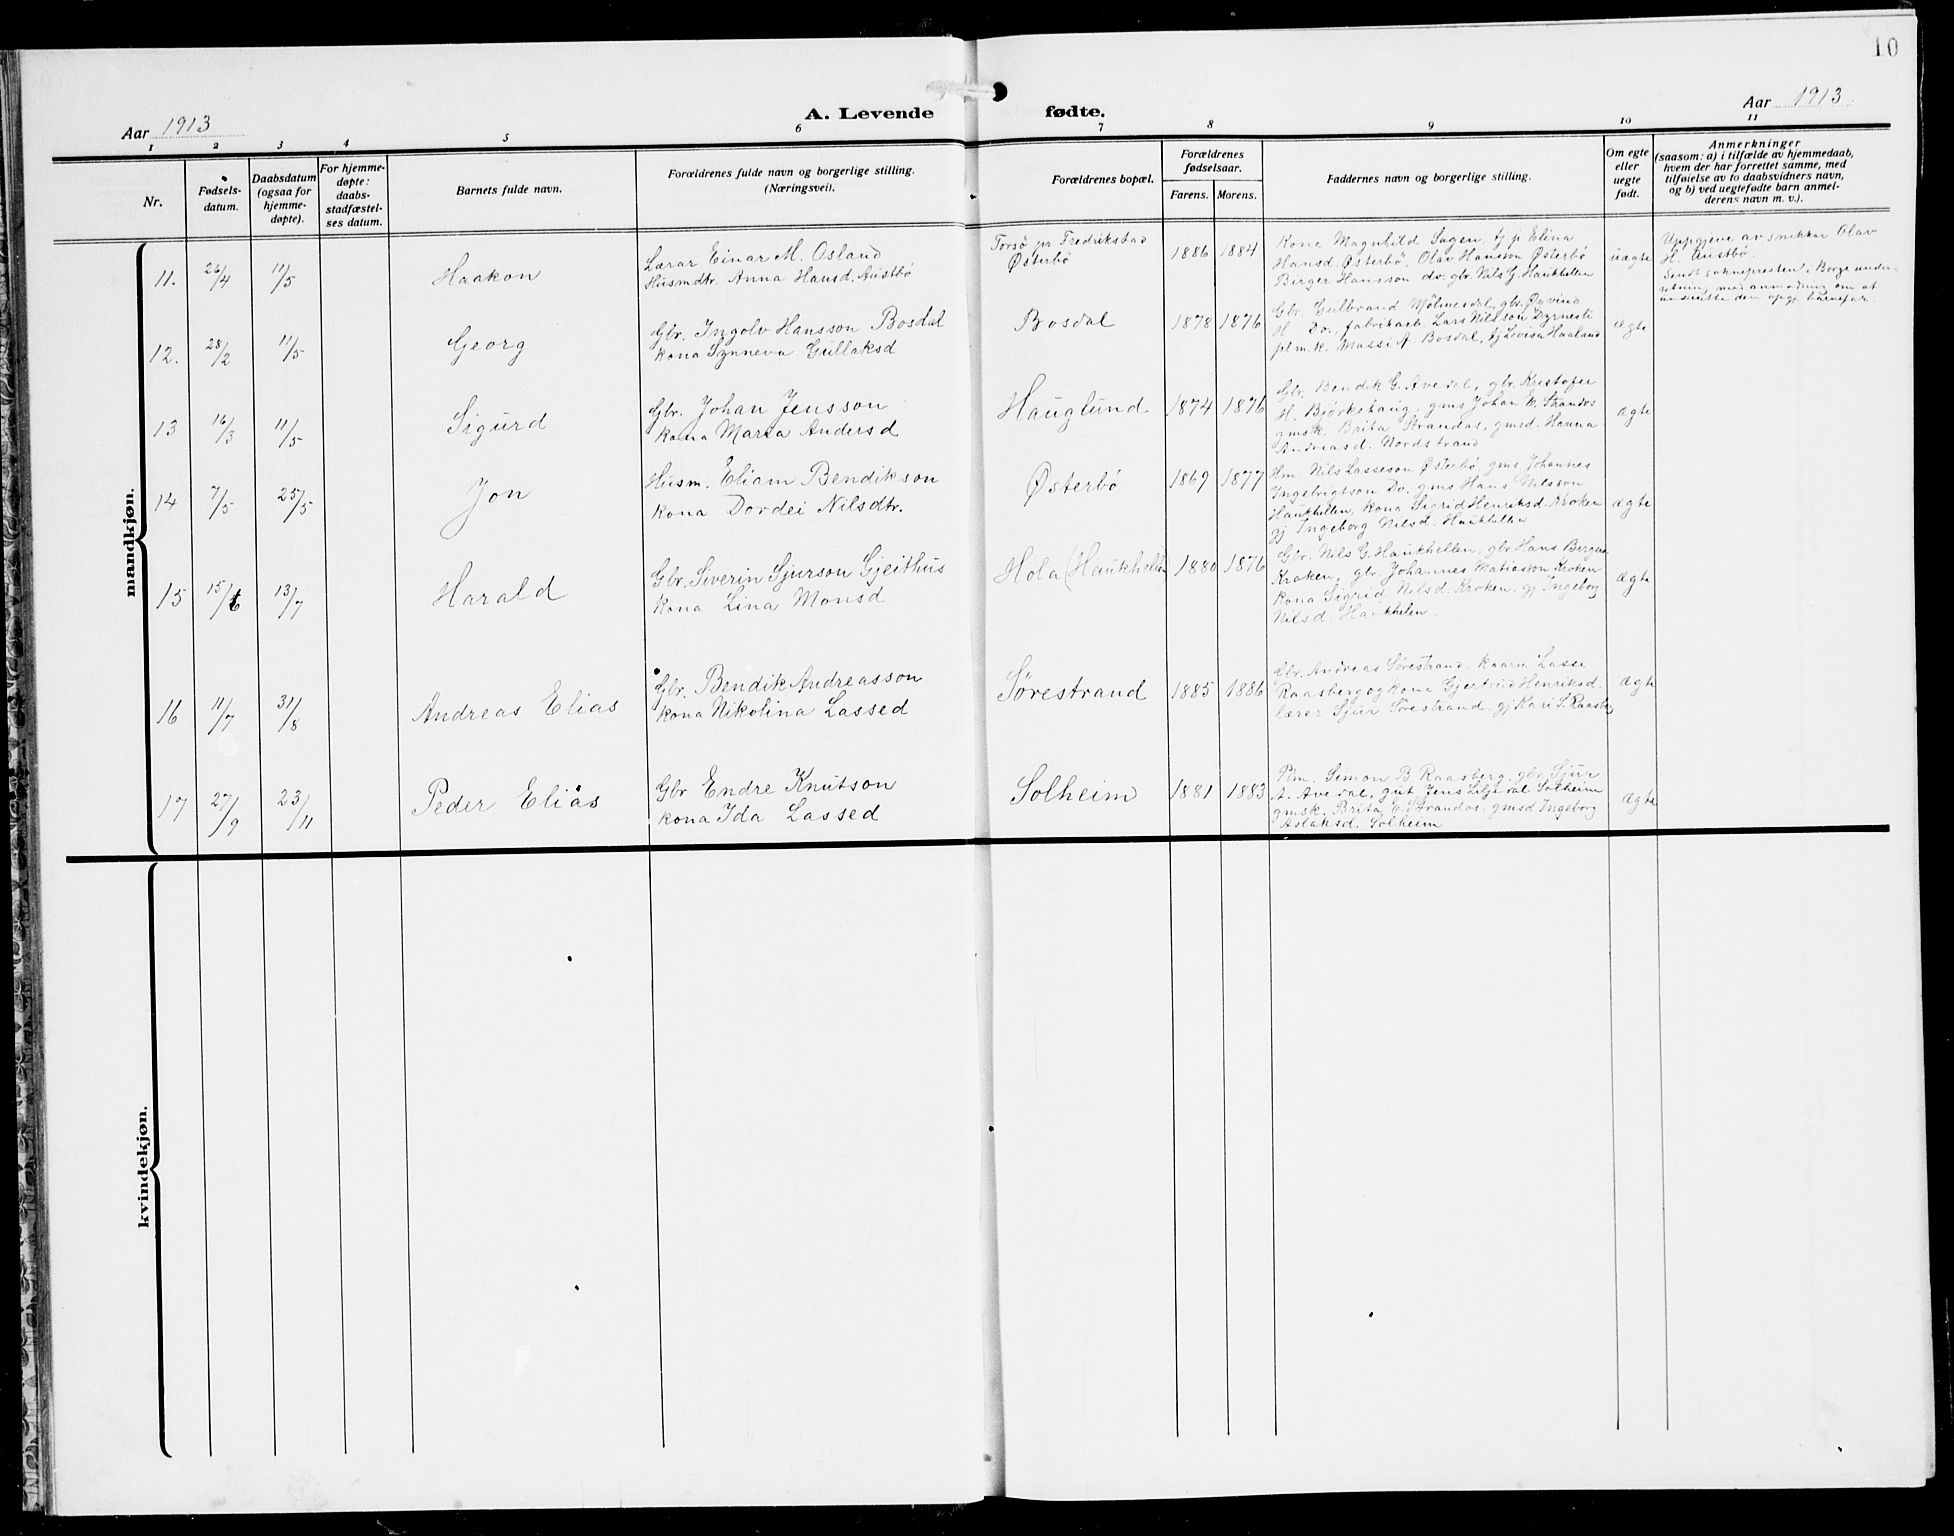 10
Aar 1913
A. Levende fødte.
Aar 1913
1 2 3 4 5 6 7 8 9 10 11
Nr.
Fødsels-
datum.
Daabsdatum
(ogsaa for
hjemme-
døpte).
For hjemme-
døpte:
daabs-
stadfæstel-
ses datum.
Barnets fulde navn.
Forældrenes fulde navn og borgerlige stilling.
(Næringsvei).
Forældrenes bopæl.
Forældrenes
fødselsaar.
Farens. Morens.
Faddernes navn og borgerlige stilling.
Om egte
eller
uegte
født.
Anmerkninger
(saasom: a) i tilfælde av hjemmedaab,
hvem der har forrettet samme, med
tilføielse av to daabsvidners navn,
og b) ved uegtefødte barn anmel-
derens navn m. v.).
mandkjøn.
11. 26/4 11/5 Haakon
Lærar Einar M. Osland
Husmdtr. Anna Hansd. Austbø
Torsø pr Fredrikstad
Østerbø
1886 1884
Kona Magnhild Sagen, tj p Elina
Hansd. Østerbö, Olav Hansson Østerbö
Birger Hansson do. gbr. Nils G. Haukhellen
uægte
Uppgjeve av snekkar Olav
H. Austbø.
Sendt soknepresten i Borge under-
retning, med anmodning om at
underrette den opgj. barnefar.
12. 28/2 11/5 Georg
Gbr. Ingolv Hansson Bosdal
kona Synneva Gullaksd
Bosdal
1878 1876
Gbr. Gulbrand Mjølmesdal, gbr. Øyvind
H. Do., fabrikarb. Lars Nilsson Dyrnesli
plm. k. Massi A. Bosdal, tj Lovisa Haaland
ægte
13 16/3 11/5 Sigurd
Gbr. Johan Jensson
kona Marta Andersd
Hauglund
1874 1876
Gbr. Bendik G. Avedal, gbr. Kristofer
H. Bjørkehaug, gms Johan W. Strandos
gmsk. Brita Strandos, gmsd. Hanna
Andreasd. Nordstrand
ægte
14 7/5 25/5 Jon
Husm. Eliam Bendikson
kona Dordei Nilsdtr.
Østerbö
1869 1877
Hm. Nils Lasseson Østerbö, gms Johannes
Ingebrigtson Do. gms Hans Nilsson
Haukhellen, kona Sigrid Henriksd. Kroken
gj Ingeborg Nilsd. Haukhellen
ægte
15 15/6 13/7 Harald
Gbr. Siverin Sjurson Gjeithus
kona Lina Monsd
Hola (Haukhellen
1880 1876
Gbr. Nils G. Haukhellen, gbr Hans
Kroken, gbr Johannes Matiasson Kroken
kona Sigrid Nilsd. Kroken, gj Ingeborg
Nilsd. Haukhelen.
ægte
16 11/7 31/8 Andreas Elias
Gbr. Bendik Andreasson
kona Nikolina Lassed
Sørestrand
1885 1886
Gbr. Andreas Sørestrand. kaarm Lasse
Raasberg og kona Gjertrud Henriksd.
lærer Sjur Sørestrand. gj Kari S. Raasberg
ægte
17 27/9 23/11 Peder Elias
Gbr Endre Knutson
kona Ida Lassed
Solheim
1881 1883
Plm. Simon B Raasberg, gbr. Sjur
A. Avedal, gut Jens Liljedal Solheim
gmsk. Brita E. Strandos, gmsd Ingeborg
Aslaksd. Solheim
ægte
kvindekjøn.